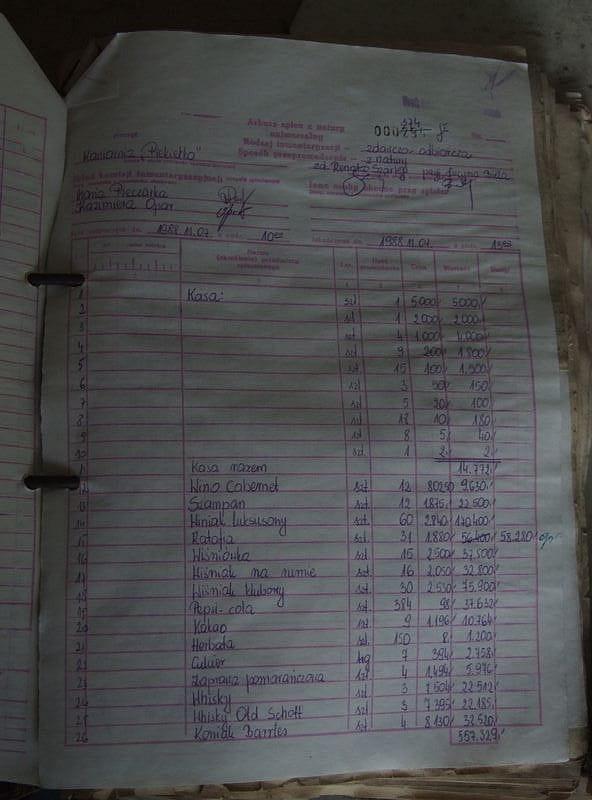 Arkusz spisu z natury
uniwersalny
Rodzaj inwentaryzacji - zdawczo-odbiorcza
Sposób przeprowadzenia - z natury
Kawiarnia "Piekiełko"
Skład komisji inwentaryzacyjnej
Inne osoby obecne przy spisie
Maria Pieczarka
Kazimiera Opar
1988.11.07. 10 1988.11.07. 15
Cena Wartość Uwagi
1 Kasa: szt 1 5000 5000
2 szt 1 2000 2.000
3 szt 4 1.000 4.000
4 szt 9 200 1.800
5 szt 15 100 1.500
6 szt 3 50 150
7 szt 5 20 100
8 szt 18 10 180
9 szt 8 5 40
10 szt. 1 2 2
11 Kasa razem 14.772
12 Wino Cabernet szt 12 9.630
13 Szampan szt 12 1875 22.500
14 Winiak luksusowy szt 60 2840 170.400
15 Ratafia szt 31 1.880 58.280
16 Wiśniówka szt 15 2500 37.500
17 Wiśniak na rumie szt 16 2.050 32.800
18 Winiak klubowy szt 30 2.530 75.900
19 Pepsi-cola szt 384 98 37.632
20 Kakao szt 9 1.196 10.764
21 Herbata szt. 150 8 1.200
22 Cukier kg 7 394 2.758
23 Zaprawa pomarańczowa szt 4 1.494 5.976
24 Whisky szt 3 7504 22.512
25 Whisky Old Schott szt 3 7395 22.185
26 Koniak szt 4 8130 32.520
557.329